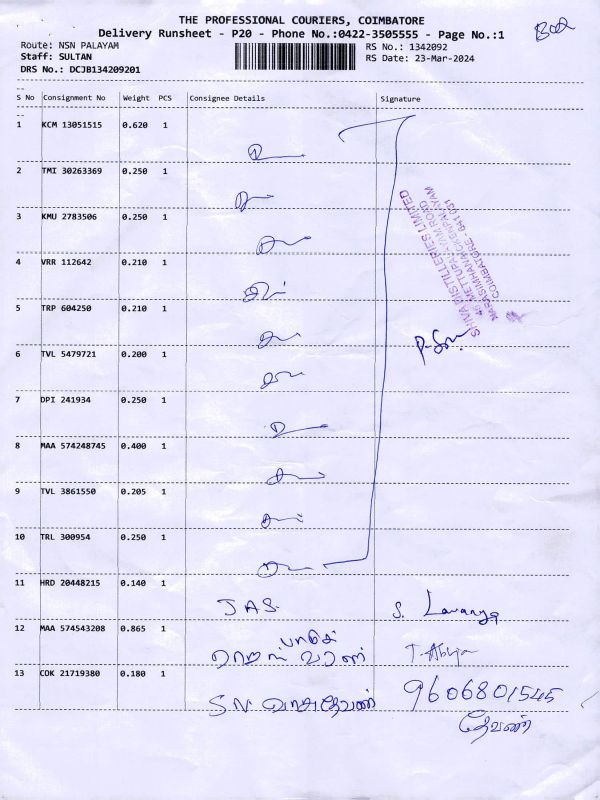 THE PROFESSIONAL COURIERS, COIMBATORE
Delivery Runsheet - P20 - Phone No.:0422-3505555 - Page No.:1
Route: NSN PALAYAM
RS No.: 1342092
Staff: SULTAN
RS Date: 23-Mar-2024
DRS No.: DCJB134209201
S No Consignment No Weight PCS Consignee Details Signature
1 KCM 13051515 0.620 1
2 TMI 30263369 0.250 1
3 KMU 2783506 0.250 1
4 VRR 112642 0.210 1
5 TRP 604250 0.210 1
6 TVL 5479721 0.200 1
7 DPI 241934 0.250 1
8 MAA 574248745 0.400 1
9 TVL 3861550 0.205 1
10 TRL 300954 0.250 1
SHIVA DISTILLERIES LIMITED
METTUPALAYAM ROAD
NARASIMHANAICKENPALAYAM
COIMBATORE - 641 031
11 HRD 20448215 0.140 1 JAS. S. Lavanya
12 MAA 574543208 0.865 1 T. Abiya
13 COK 21719380 0.180 1 S.N. வாசுதேவன் 9606801545
தேவன்